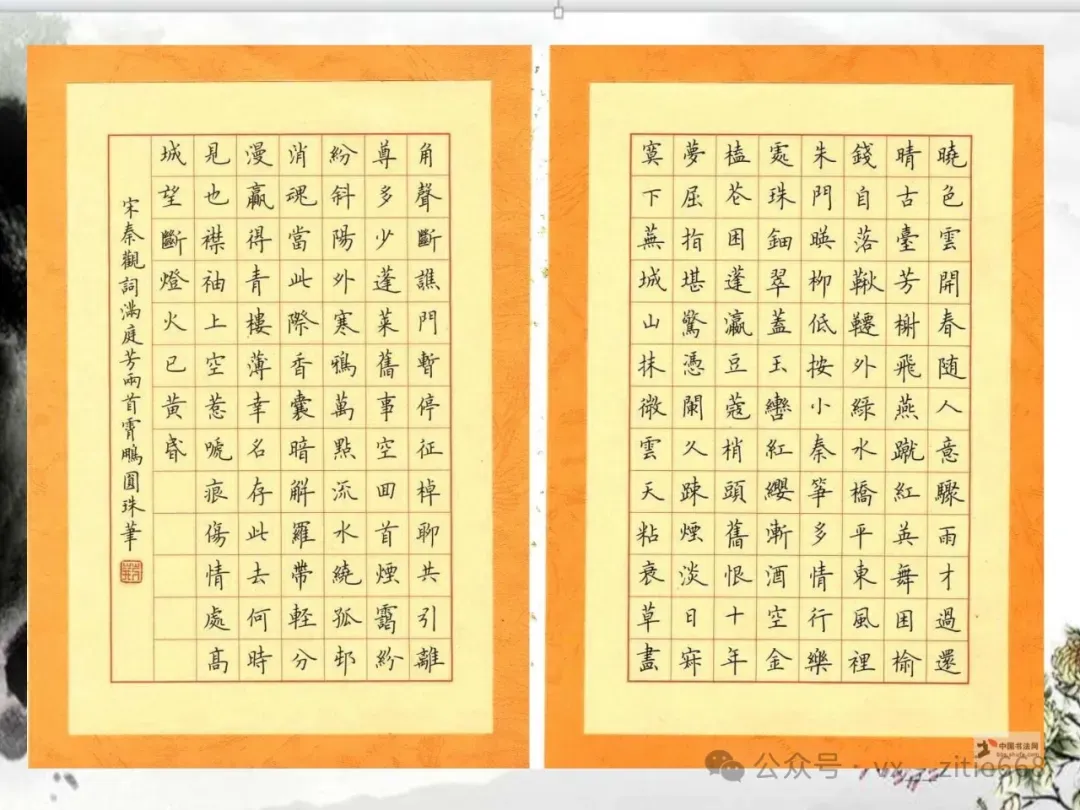 曉色雲開春随人意驟雨才過還
晴古臺芳榭飛燕蹴紅英舞困榆
錢自落鞦韆外綠水橋平東風裡
朱門暎柳低按小秦筝多情行樂
處珠鈿翠蓋玉轡紅纓漸酒空金
榼花困蓬瀛豆蔻梢頭舊恨十年
夢屈指堪驚憑闌久踈煙淡日寂
寞下蕪城山抹微雲天粘衰草畫
角聲斷譙門暫停征棹聊共引離
尊多少蓬莱舊事空回首煙靄紛
紛斜陽外寒鴉萬點流水繞孤邨
消魂當此際香囊暗解羅帶軽分
漫贏得青樓薄幸名存此去何時
見也襟袖上空惹嗁痕傷情處高
城望斷燈火已黄昏
宋秦觀詞满庭芳兩首霄鵬圓珠筆
中国书法网
公众号 · vx--zitie668